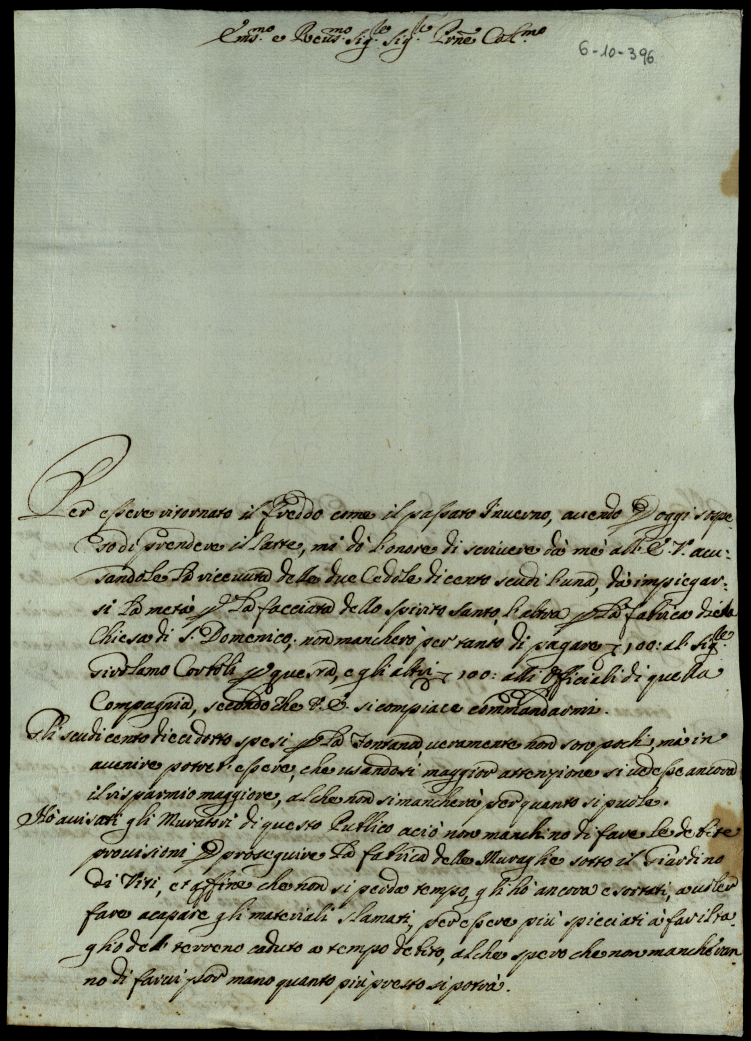 Em.mo e Rev.mo Sig.re Sig.re Prne Col.mo
6-10-396
Per essere ritornato il freddo come il passato Inverno, avendo p oggi sospe-
so di prendere il latte, mi dò l'onore di scrivere dà mè all' E. V. accu-
sandole la ricevuta delle due Cedole di cento scudi l'una, da impiegar-
si la metà p la facciata dello spirito santo, l'altra p la fabrica della
Chiesa di S. Domenico; non mancherò per tanto di pagare 100: al Sig.re
Girolamo Bortoli p questa, e gli altri 100: alli Officiali di quella
Compagnia, secondo che V. E. si compiace commandarmi.
Gli scudi cento dieciotto spesi p la Fontana, veramente non sono pochi, mà in
avenire potrebe essere, che usandosi maggior attenzione si vedesse ancora
il risparmio maggiore, al che non si mancherà per quanto si puole.
Hò avisati gli Muratori di questo Publico aciò non manchino di fare le debite
provisioni p proseguire la fabrica delle Muraglie sotto il Giardino
di Viti, et affine che non si perda tempo, gli hò ancora esortati, a voler
fare acapare gli materiali slamati, per essere più spicciati à far il ta-
glio dell terreno caduto a tempo debito, al che spero che non mancheran-
no di farvi por mano quanto più presto si potrà.